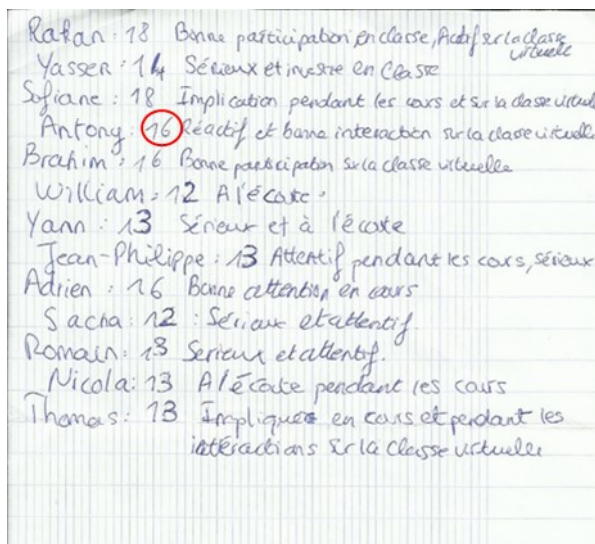 Rafan : 18 Bonne participation en classe, Actif sur la classe
virtuelle
Yasser : 14 Sérieux et investie en Classe
Sofiane : 18 Implication pendant les cours et sur la classe virtuel
Antony : 16 Réactif et bonne interaction sur la classe virtuelle
Brahim : 16 Bonne participation sur la classe virtuelle
William : 12 A l'écoute.
Yann : 13 Sérieux et à l'écoute
Jean-Philippe : 13 Attentif pendant les cours, sérieux
Adrien : 16 Bonne attention en cours
Sacha : 12 : Sérieux et attentif
Romain : 13 Serieux et attentif.
Nicola : 13 A l'écoute pendant les cours
Thomas : 13 Impliqué en cours et pendant les
intéractions sur la classe virtuelle